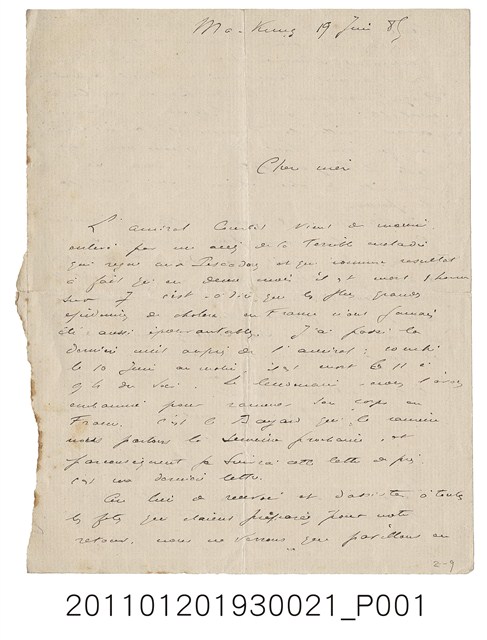 Ma-Kung 19 Juin 85
Cher ami
L'amiral Courbet vient de mourir
enlevé par un accès de la terrible maladie
qui règne aux Pescadores et qui comme résultat
a fait qu'en deux mois il est mort 1 homme
sur 7 c'est-à-dire que les plus grandes
épidémies de choléra en France n'ont jamais
été aussi épouvantables. J'ai passé la
dernière nuit auprès de l'amiral; couché
le 10 Juin au matin il est mort le 11 à
9 h du soir. Le lendemain nous l'avons
embaumé pour ramener son corps en
France. C'est le Bayard qui le ramène
nous partons la semaine prochaine, et
par conséquent je suivrai cette lettre de près
c'est ma dernière lettre.
Au lieu de recevoir et d'assister à toutes
les fêtes qui étaient préparées pour notre
retour, nous ne verrons que pavillons en
2-9
201101201930021_P001